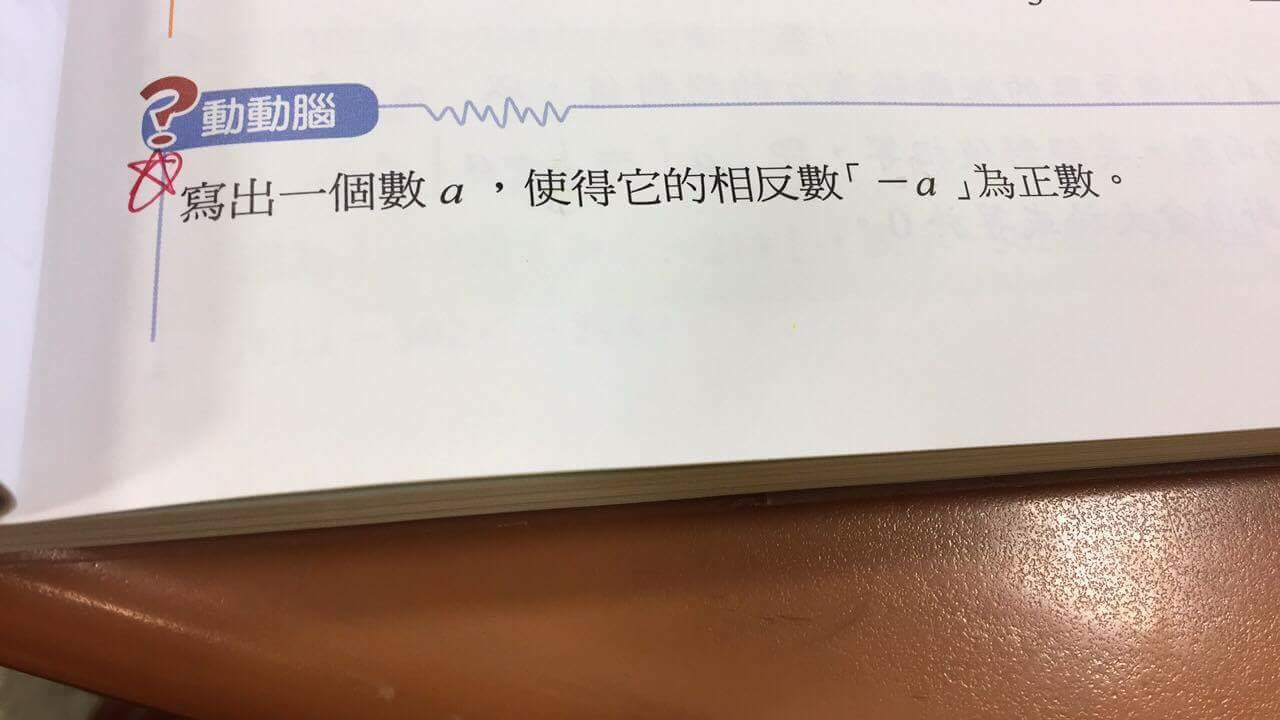 動動腦
寫出一個數 a ，使得它的相反數「－a 」為正數。